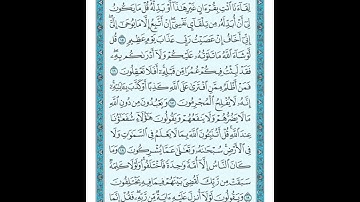 لِقَآءَنَا ٱئْتِ بِقُرْءَانٍ غَيْرِ هَٰذَآ أَوْ بَدِّلْهُ ۚ قُلْ مَا يَكُونُ
لِىٓ أَنْ أُبَدِّلَهُۥ مِن تِلْقَآئِ نَفْسِىٓ ۖ إِنْ أَتَّبِعُ إِلَّا مَا يُوحَىٰٓ إِلَىَّ ۖ
إِنِّىٓ أَخَافُ إِنْ عَصَيْتُ رَبِّى عَذَابَ يَوْمٍ عَظِيمٍ ١٥ قُل
لَّوْ شَآءَ ٱللَّهُ مَا تَلَوْتُهُۥ عَلَيْكُمْ وَلَآ أَدْرَىٰكُم بِهِۦ ۖ
فَقَدْ لَبِثْتُ فِيكُمْ عُمُرًا مِّن قَبْلِهِۦٓ ۚ أَفَلَا تَعْقِلُونَ ١٦
فَمَنْ أَظْلَمُ مِمَّنِ ٱفْتَرَىٰ عَلَى ٱللَّهِ كَذِبًا أَوْ كَذَّبَ بِـَٔايَٰتِهِۦٓ ۚ
إِنَّهُۥ لَا يُفْلِحُ ٱلْمُجْرِمُونَ ١٧ وَيَعْبُدُونَ مِن دُونِ ٱللَّهِ
مَا لَا يَضُرُّهُمْ وَلَا يَنفَعُهُمْ وَيَقُولُونَ هَٰٓؤُلَآءِ شُفَعَٰٓؤُنَا
عِندَ ٱللَّهِ ۚ قُلْ أَتُنَبِّـُٔونَ ٱللَّهَ بِمَا لَا يَعْلَمُ فِى ٱلسَّمَٰوَٰتِ وَلَا
فِى ٱلْأَرْضِ ۚ سُبْحَٰنَهُۥ وَتَعَٰلَىٰ عَمَّا يُشْرِكُونَ ١٨ وَمَا
كَانَ ٱلنَّاسُ إِلَّآ أُمَّةً وَٰحِدَةً فَٱخْتَلَفُوا۟ ۚ وَلَوْلَا كَلِمَةٌ
سَبَقَتْ مِن رَّبِّكَ لَقُضِىَ بَيْنَهُمْ فِيمَا فِيهِ يَخْتَلِفُونَ ١٩
وَيَقُولُونَ لَوْلَآ أُنزِلَ عَلَيْهِ ءَايَةٌ مِّن رَّبِّهِۦ ۖ فَقُلْ إِنَّمَا